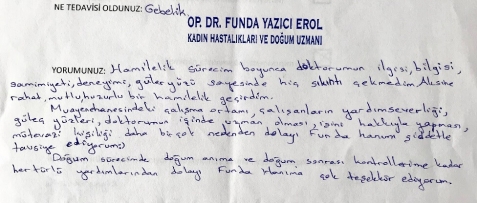 NE TEDAVİSİ OLDUNUZ: Gebelik
OP. DR. FUNDA YAZICI EROL
KADIN HASTALIKLARI VE DOĞUM UZMANI
YORUMUNUZ: Hamilelik sürecim boyunca doktorumun ilgisi, bilgisi,
samimiyeti, deneyimi, güler yüzü sayesinde hiç sıkıntı çekmedim. Aksine
rahat, mutlu, huzurlu bir hamilelik geçirdim.
Muayenehanesindeki çalışma ortamı, çalışanların yardımseverliği,
güleç yüzleri, doktorumun işinde uzman olması, işini hakkıyla yapması,
mütevazi kişiliği daha birçok nedenden dolayı Funda hanımı şiddetle
tavsiye ediyorum:)
Doğum sürecimde doğum anıma ve doğum sonrası kontrollerime kadar
her türlü yardımlarından dolayı Funda Hanıma çok teşekkür ediyorum.